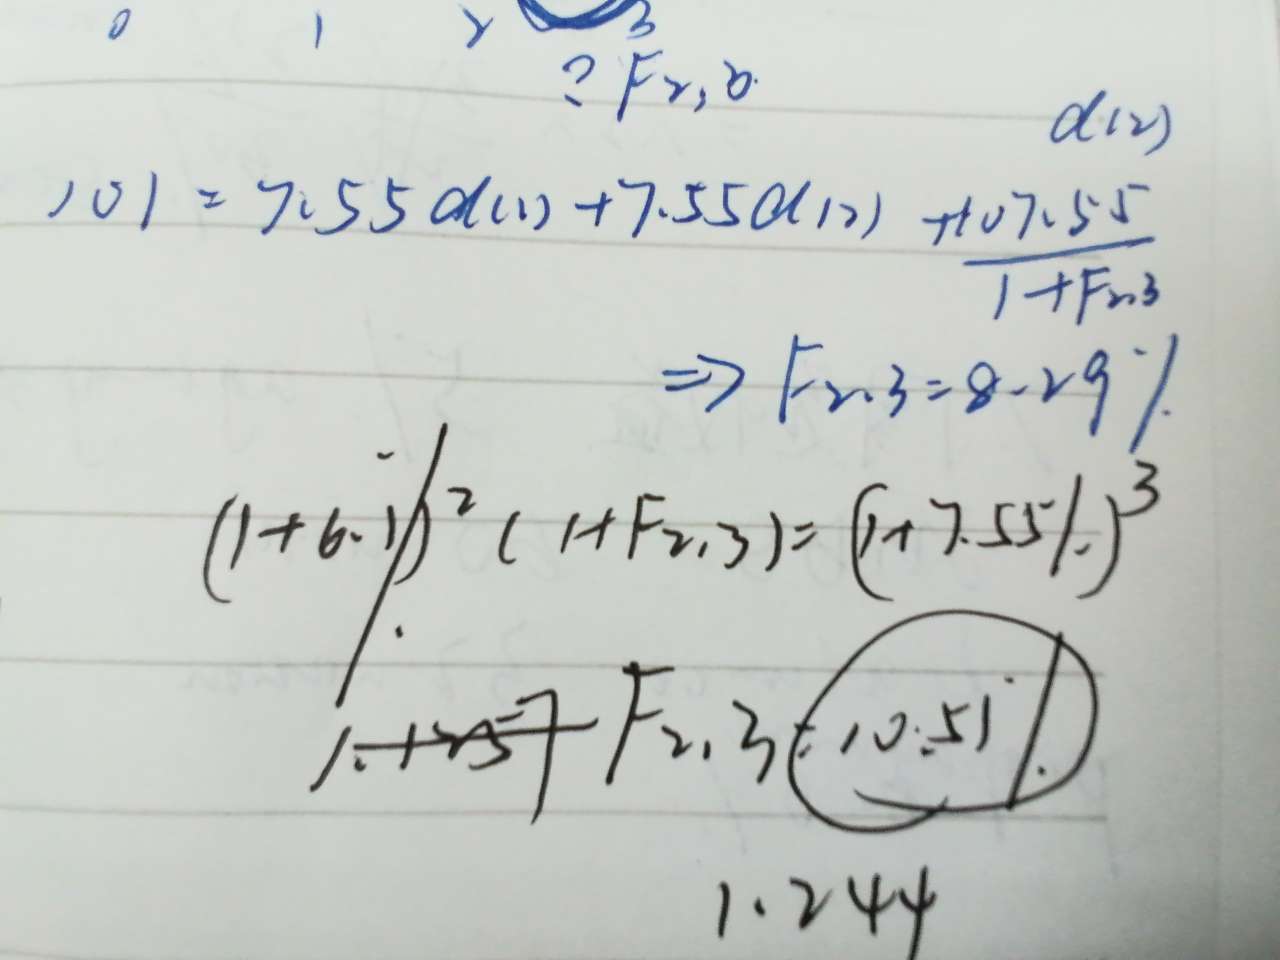 0 1 2 3
? F2,3
d(2)
101 = 7.55d(1) + 7.55d(2) + 107.55
1+F2.3
⇒ F2.3 = 8.29%
(1+6.1%)² (1+F2,3) = (1+7.55%)³
F2,3 = 10.51%
1.244